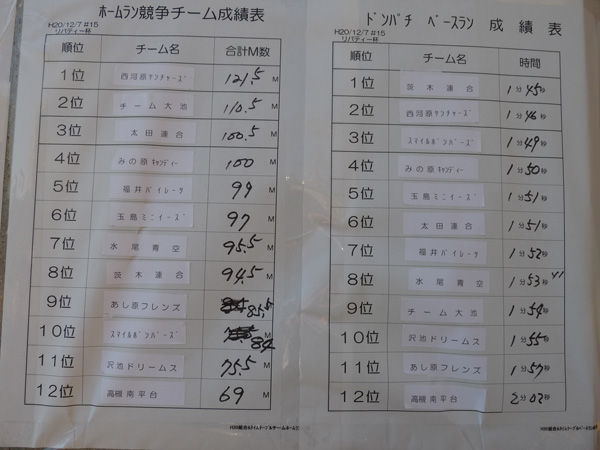 ホームラン競争チーム成績表
H20/12/7 #15
リバティー杯
順位 チーム名 合計M数
1位 西河原サンチャーズ 121.5 M
2位 チーム大池 110.5 M
3位 太田連合 100.5 M
4位 みの原キャンディー 100 M
5位 福井パイレーツ 99 M
6位 玉島ミニイーズ 97 M
7位 水尾青空 95.5 M
8位 茨木連合 94.5 M
9位 あし原フレンズ 85.5 M
10位 スマイルボンバーズ 84
11位 沢池ドリームス 75.5 M
12位 高槻南平台 69 M
ドンパチ ベースラン 成績表
H20/12/7 #15
リバティー杯
順位 チーム名 時間
1位 茨木連合 1分45秒
2位 西河原サンチャーズ 1分46秒
3位 スマイルボンバーズ 1分49秒
4位 みの原キャンディー 1分50秒
5位 玉島ミニイーズ 1分51秒
6位 太田連合 1分51秒
7位 福井パイレーツ 1分52秒
8位 水尾青空 1分53秒
9位 チーム大池 1分54秒
10位 沢池ドリームス 1分55秒
11位 あし原フレンズ 1分57秒
12位 高槻南平台 2分02秒